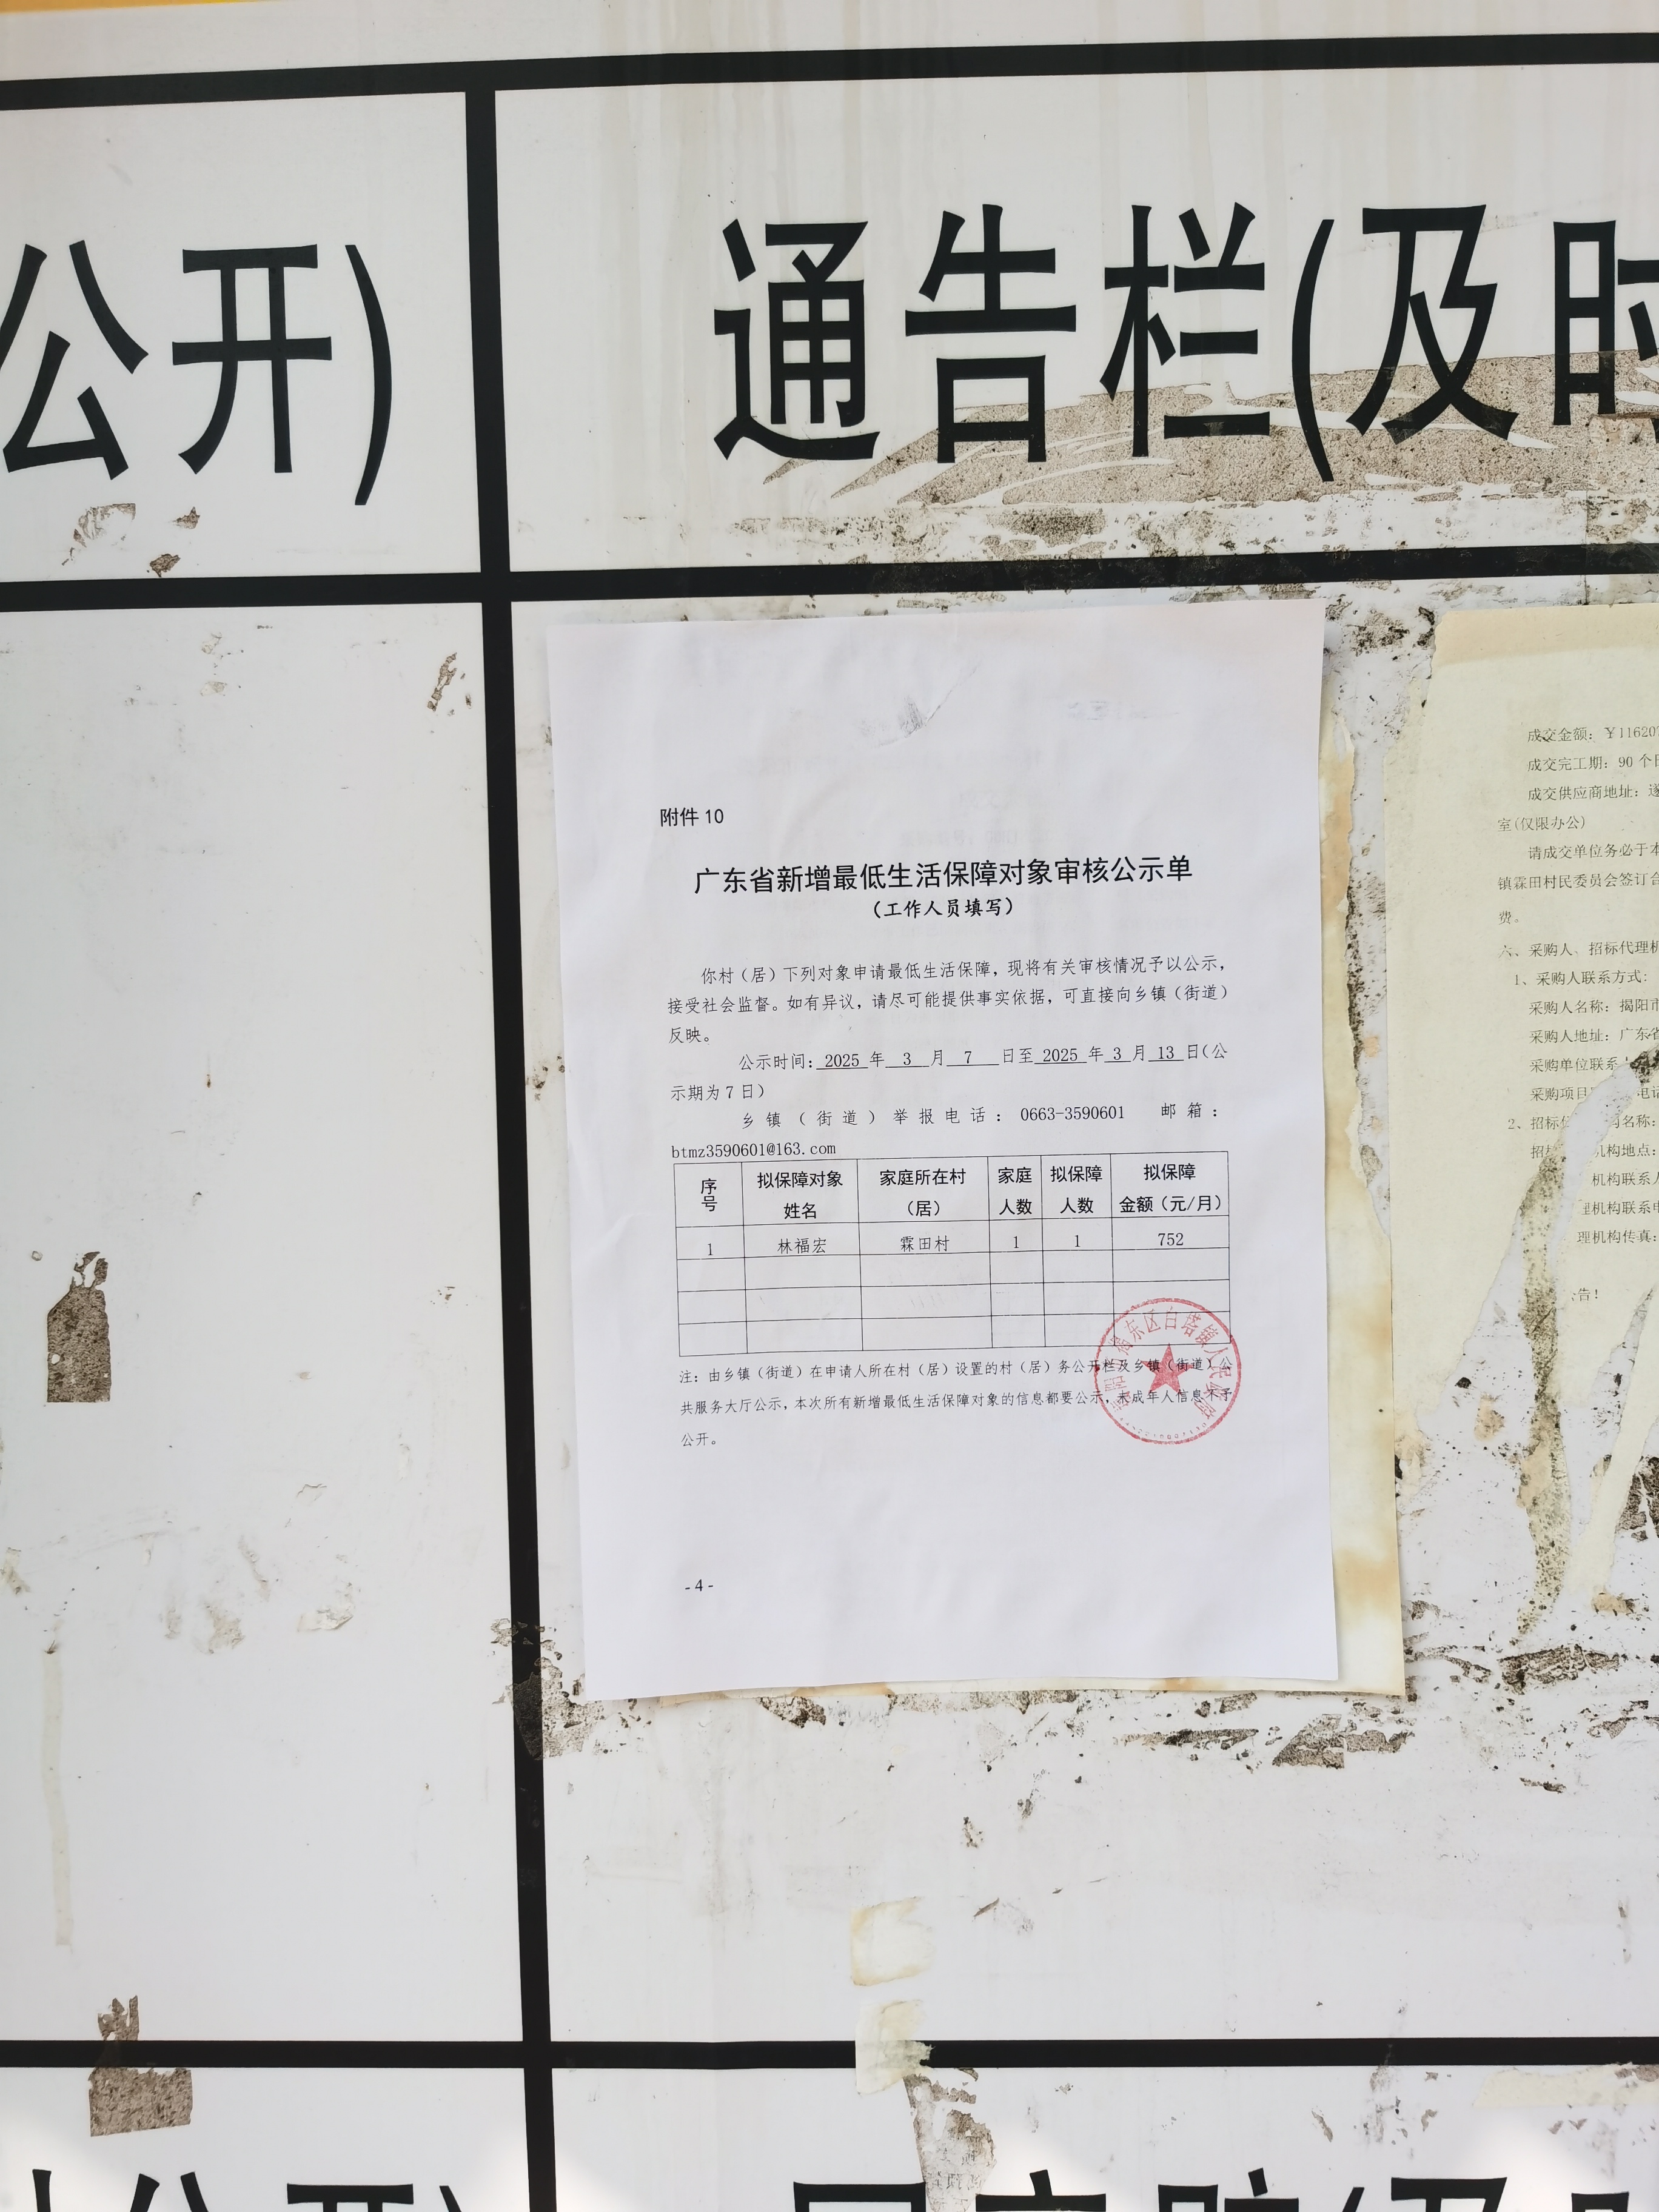 公开)
通告栏(及时
附件 10
广东省新增最低生活保障对象审核公示单
（工作人员填写）
你村（居）下列对象申请最低生活保障，现将有关审核情况予以公示，
接受社会监督。如有异议，请尽可能提供事实依据，可直接向乡镇（街道）
反映。
公示时间：2025 年 3 月 7 日至 2025 年 3 月 13 日(公
示期为 7 日)
乡镇（街道）举报电话：0663-3590601 邮箱：
btmz3590601@163.com
序号 拟保障对象姓名 家庭所在村（居） 家庭人数 拟保障人数 拟保障金额（元/月）
1 林福宏 霖田村 1 1 752
注：由乡镇（街道）在申请人所在村（居）设置的村（居）务公开栏及乡镇（街道）公
共服务大厅公示，本次所有新增最低生活保障对象的信息都要公示，未成年人信息不予
公开。
东区白塔镇人民
- 4 -
成交金额：￥11620
成交完工期：90 个
成交供应商地址：
室(仅限办公)
请成交单位务必于本
镇霖田村民委员会签订合
费。
六、采购人、招标代理机
1、采购人联系方式：
采购人名称：揭阳市
采购人地址：广东省
采购单位联系
采购项目 电话
2、招标 名称：
招 机构地点：
机构联系人
理机构联系电
理机构传真：
告！
公开)